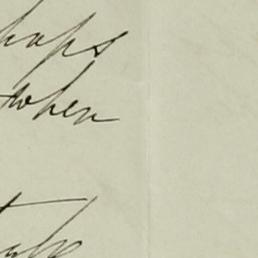 haps
when